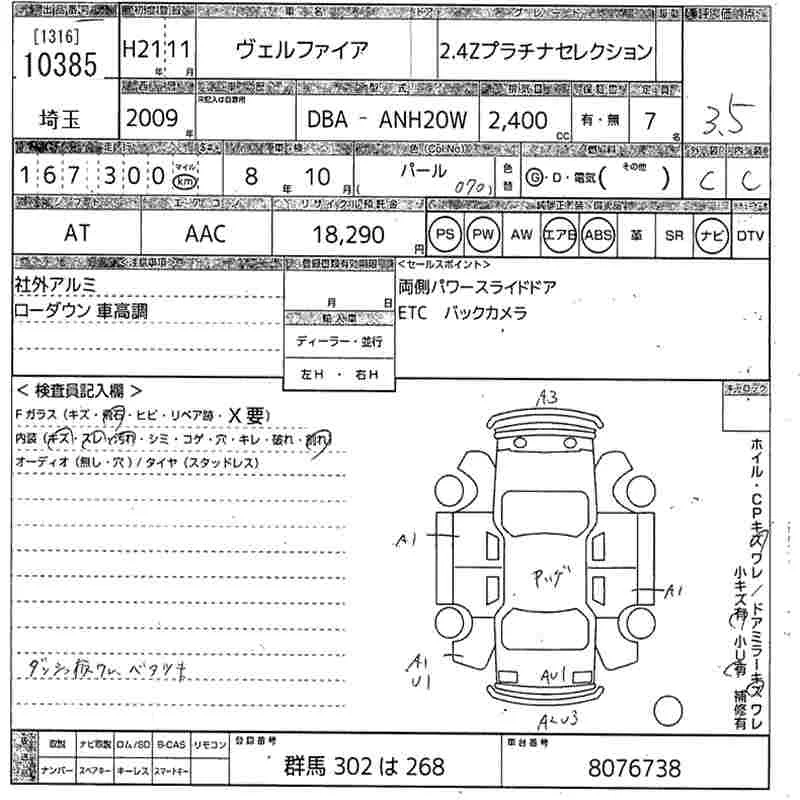 [1316]
10385
H21 11 ヴェルファイア 2.4Zプラチナセレクション
年 月
埼玉 2009 年 DBA - ANH20W 2,400 CC 有・無 7 名 3.5
167,300 マイル km 8 年 10 月 パール ( 070 ) 色替 G・D・電気( その他 ) C C
AT AAC 18,290 円 PS PW AW エアB ABS 革 SR ナビ DTV
社外アルミ
ローダウン 車高調
月 日
輸入車
ディーラー・並行
左H ・ 右H
<セールスポイント>
両側パワースライドドア
ETC バックカメラ
< 検査員記入欄 >
Fガラス (キズ・飛石・ヒビ・リペア跡・X要)
内装 (キズ・スレ・汚れ・シミ・コゲ・穴・キレ・破れ・割れ)
オーディオ (無し・穴) / タイヤ (スタッドレス)
A3
A1
A1
A1
U1
AU1
A2U3
ホイル・CPキズワレ/ドアミラーキズワレ
小キズ有 小U有 補修有
取説 ナビ取説 ロム/SD B-CAS リモコン
ナンバー スペアキー キーレス スマートキー
登録番号
群馬 302 は 268
車台番号
8076738